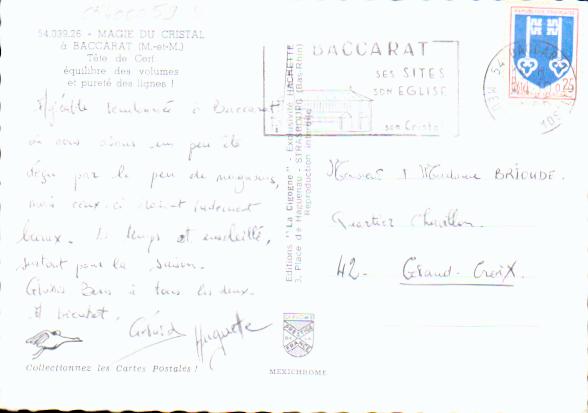 54.039.26 - MAGIE DU CRISTAL
à BACCARAT (M.-et-M.)
Tête de Cerf
équilibre des volumes
et pureté des lignes !
à Baccarat
où nous avons un peu été
déçu par le peu de magasins,
mais ceux-ci
Le temps est ensoleillé,
surtout pour la saison.
Gros à tous les deux.
et bientôt.
Huguette
Collectionnez les Cartes Postales !
Editions "La Cigogne" - Exclusivité HACHETTE
3, Place de Haguenau - STRASBOURG (Bas-Rhin)
Reproduction interdite
PRESTIGE
FRANCE
MEXICHROME
BACCARAT
SES SITES
SON EGLISE
son Cristal
54 BACCARAT
REPUBLIQUE FRANÇAISE
0,25
Monsieur & Madame BRIOUDE.
Quartier
42 - Grand-Croix.